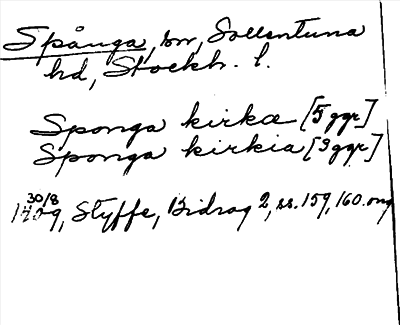 Spånga, sn, Sollentuna
hd, Stockh. l.
Sponga kirkæ [5 ggr]
Sponga kirkia [3 ggr]
30/8
1409, Styffe, Bidrag 2, ss. 159, 160. omg